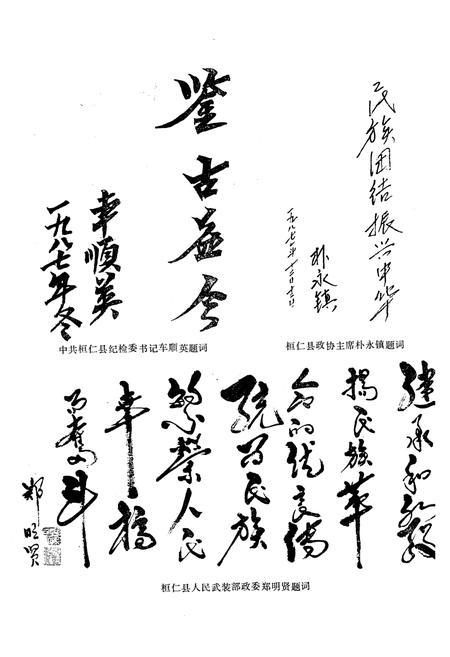 鉴古益今
車順英
一九八七年冬
中共桓仁县纪检委书记车顺英题词
民族团结振兴中华
朴永镇
一九八七年
桓仁县政协主席朴永镇题词
继承和发
揚民族革
命的优良傳
统为民族
繁榮人民
幸福
而奮斗
郑明贤
桓仁县人民武装部政委郑明贤题词